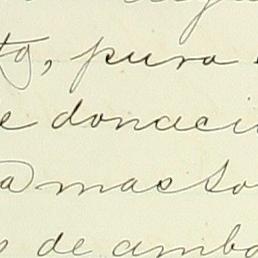 to, pura
e donaci
a masto
s de amba